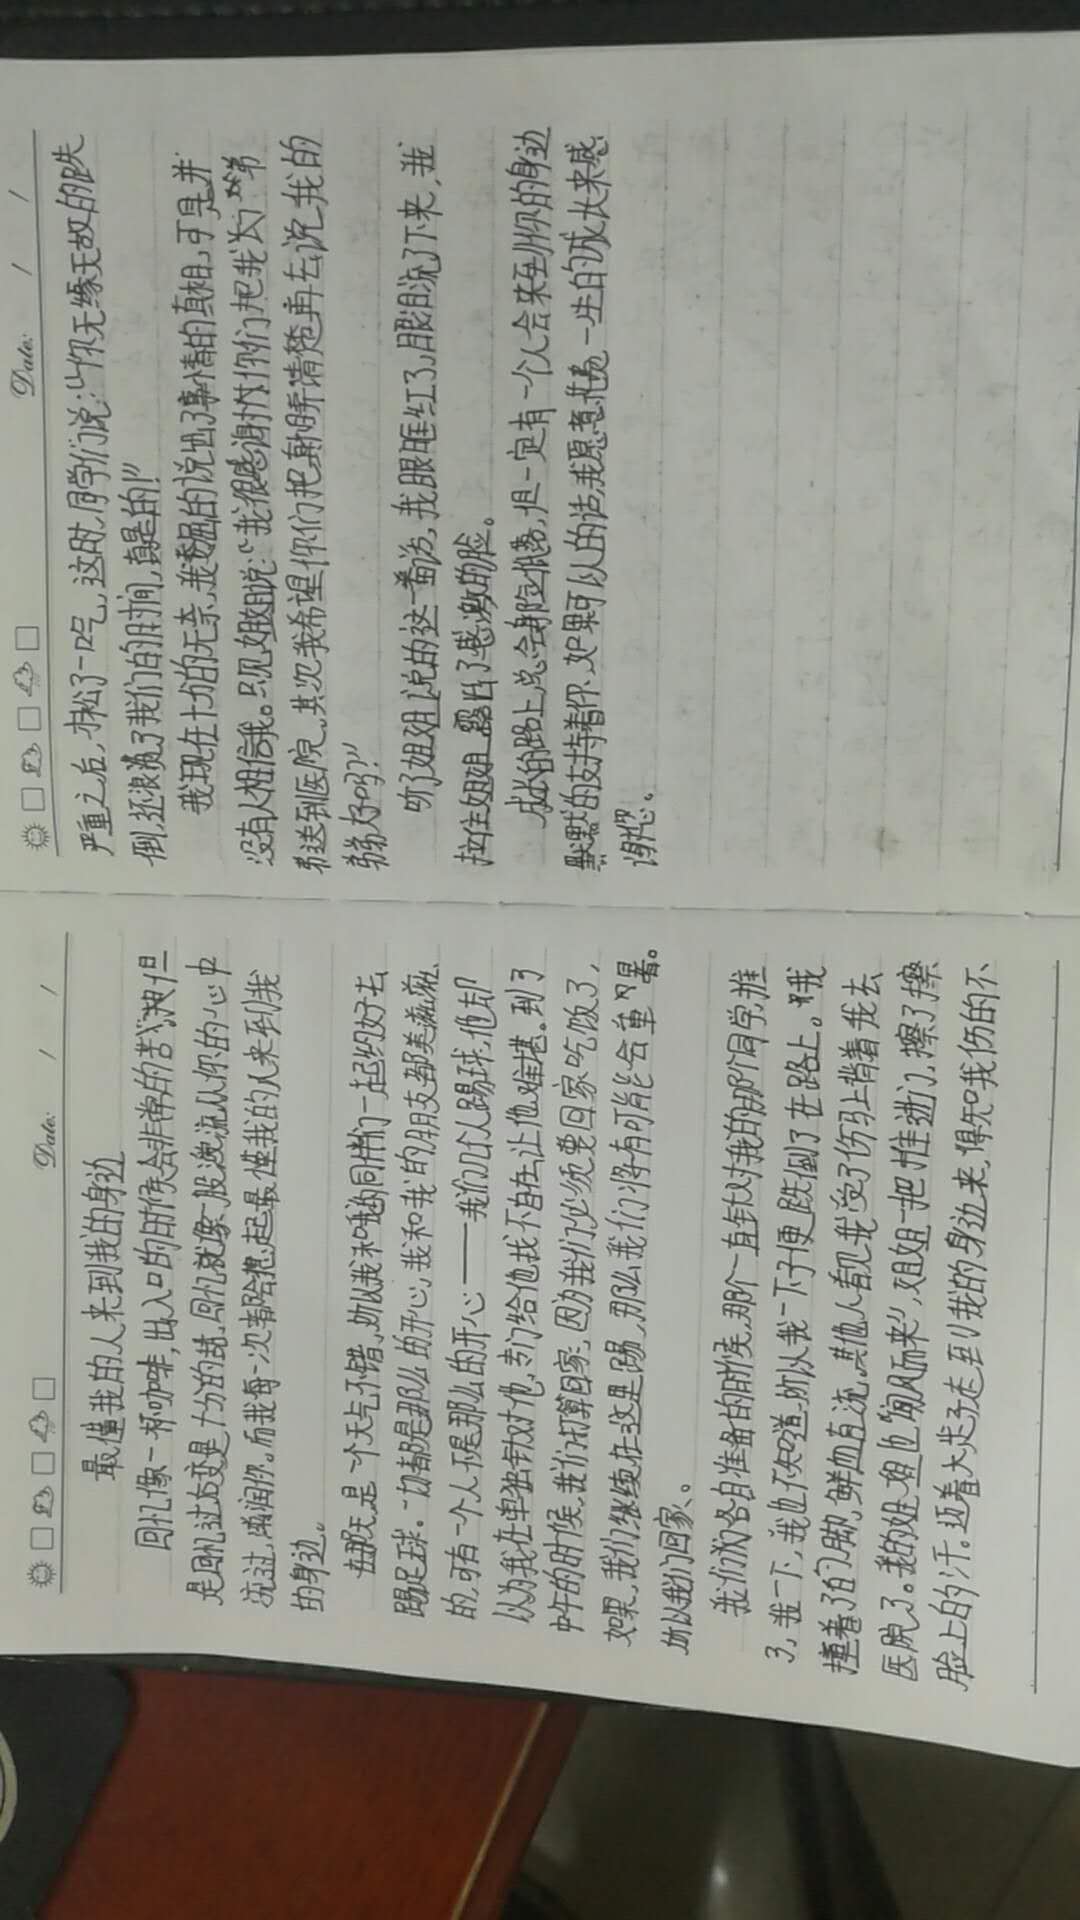 Date: / /
最懂我的人来到我的身边
回忆像一杯咖啡,出入口的时候会非常的苦涩,但
是回忆过去变是十分的甜,回忆就像一股波流从你的心中
流过,滋润你,而我每一次都会想起最懂我的人来到我
的身边。
在那天,是一个天气不错,所以我和我的同伴们一起约好去
踢足球。一切都是那么的开心,我和我的朋友都美滋滋
的,可有一个人不是那么的开心——我们几个人踢球,他却
以为我在单独针对他,专门给他找不自在,让他难堪。到了
中午的时候,我们打算回家,因为我们必须要回家吃饭了,
如果,我们继续在这里踢,那么我们将有可能会中暑。
所以我们回家、
我们次各自准备的时候,那个一直针对我的那个同学,推
了,我一下,我也不知道,所以我一下子便跌倒了在路上。我
捂着了的脚,鲜血直流,其他人看见我受了伤马上背着我去
医院了。我的姐姐也“闻风而来”,姐姐一把推进门,擦了擦
脸上的汗。迈着大步子走到我的身边来,得知我伤的不
Date: / /
严重之后,才松了一口气,这时,同学们说:“你无缘无故的跌
倒,还浪费了我们的时间,真是的!”
我现在十分的无奈,我委屈的说出了事情的真相,可是并
没有人相信我。只见姐姐说:“我很感谢你们把我的弟
弟送到医院,其次我希望你们把事情弄清楚再去说我的
弟弟好吗?”
听了姐姐说的这一番话,我眼眶红了,眼泪流了下来,我
拉住姐姐,露出了感激的脸。
成长的路上,总会那边低落,但一定有一个人会来到你的身边
默默的支持着你、如果可以的话,我愿意花费一生的成长来感
谢您。